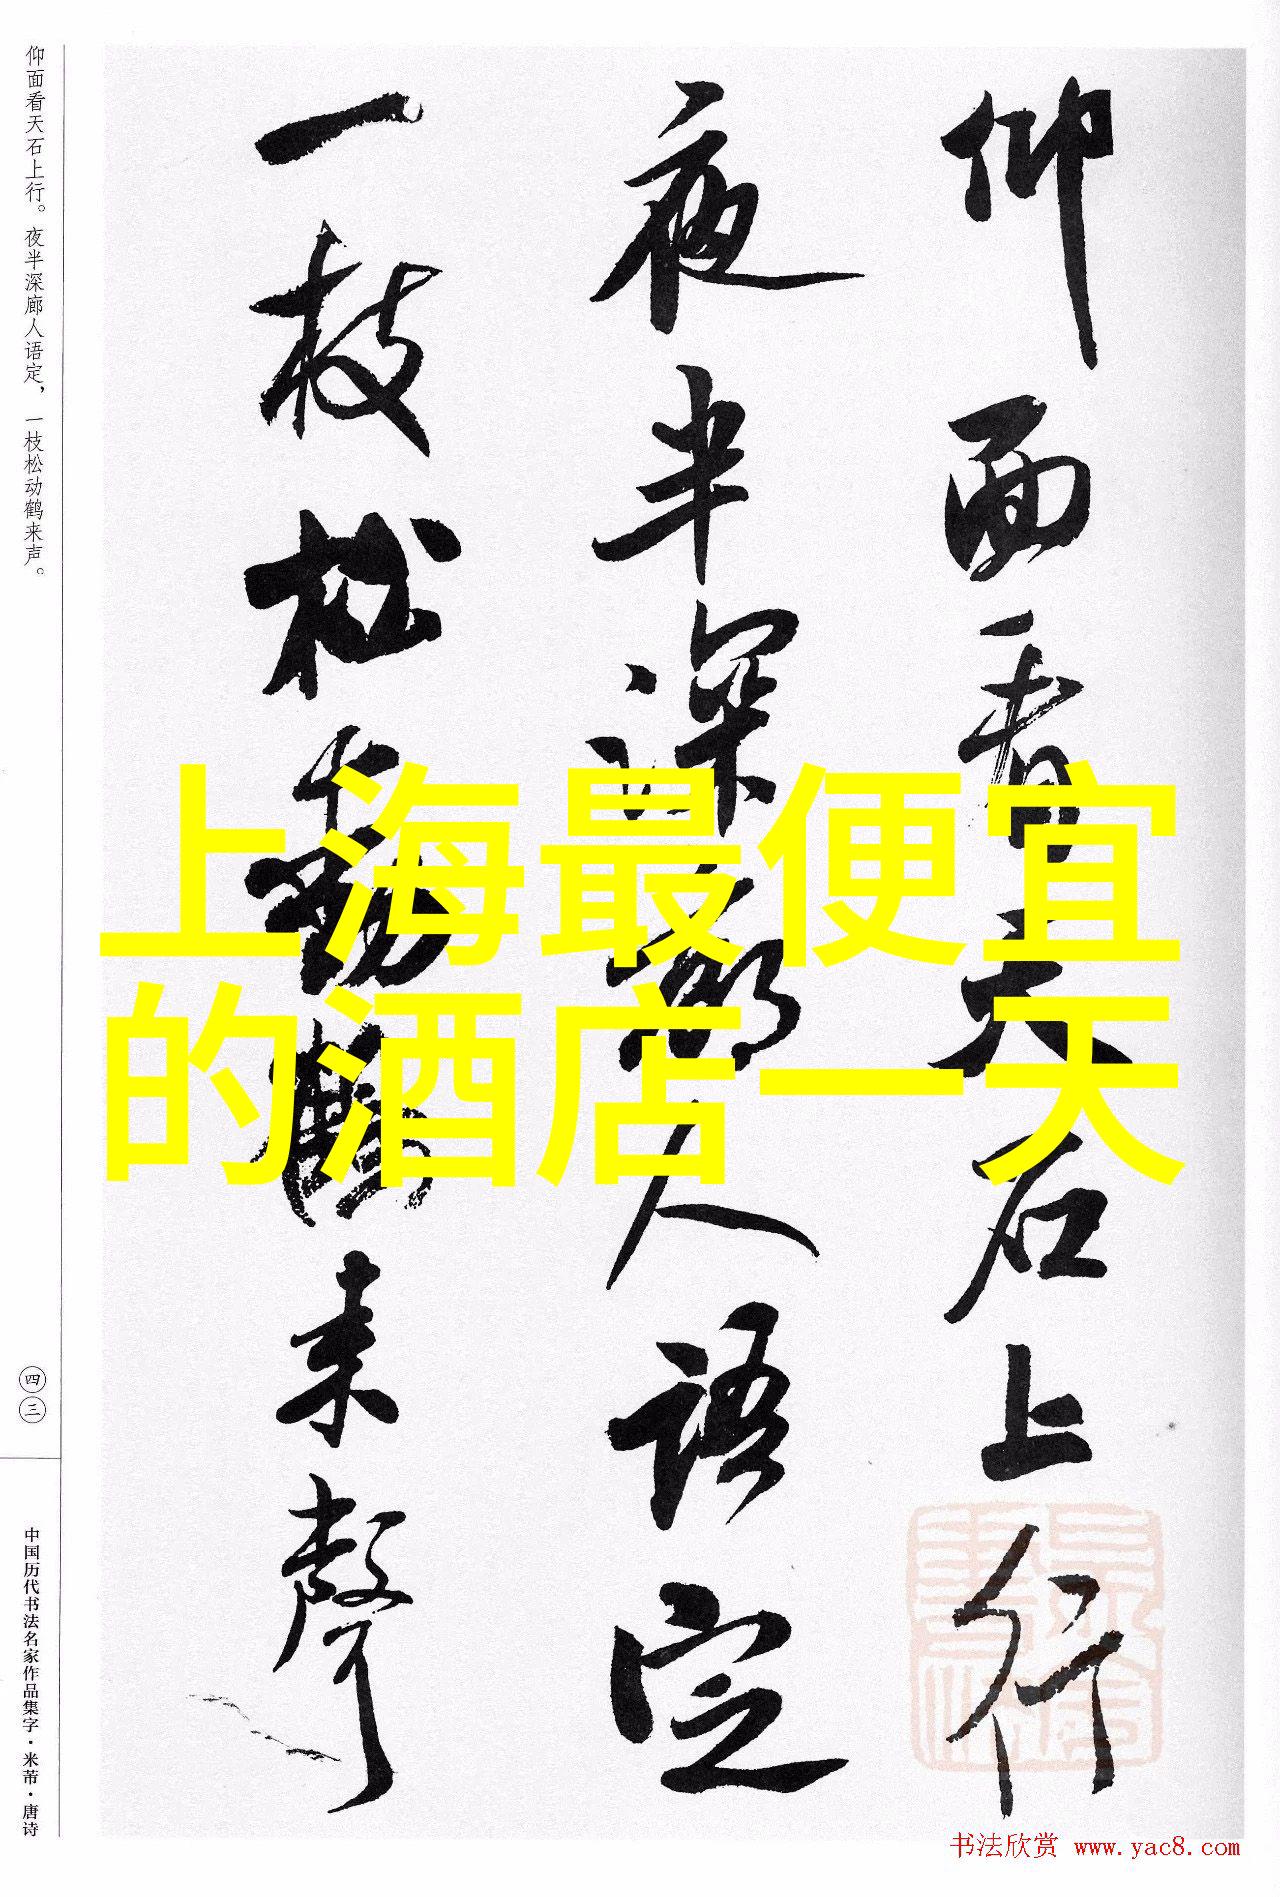 仰面看天石上行。夜半深廊人语定，一枝松动鹤来声。
仰面看天石上行
夜半深廊人語定
一枝松動鶴来聲
上海最便宜
的酒店一天
四三
中国历代书法名家作品集字·米芾·唐诗
书法欣赏 www.yac8.com